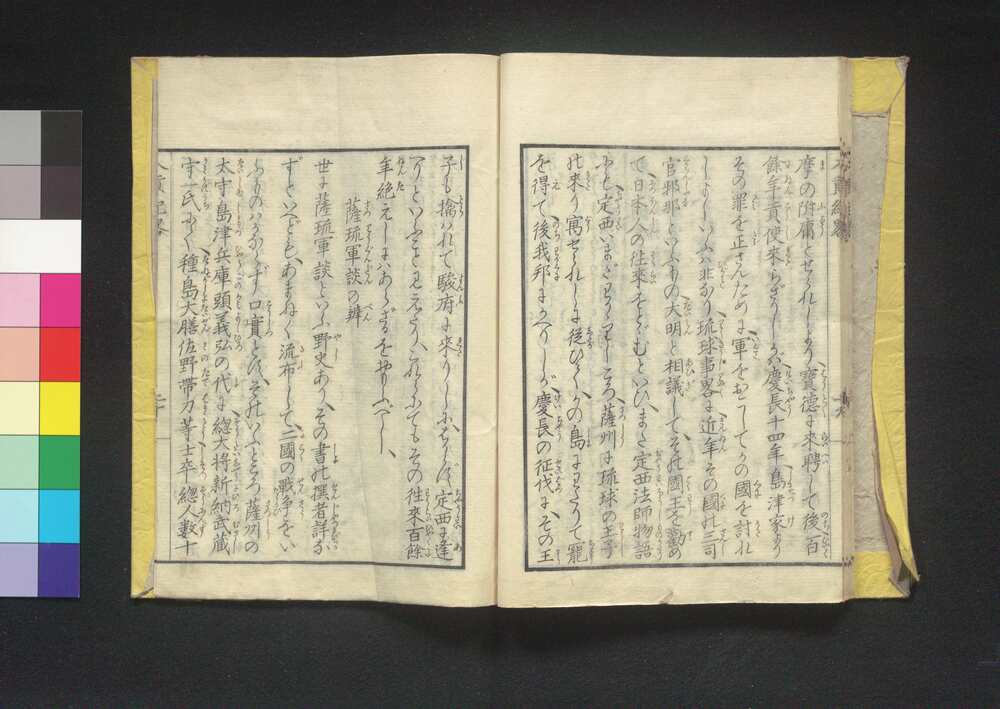 摩の附庸とせられしより寳德に来聘して後百
餘年貢使来らざりしが慶長十四年島津家より
その罪を正さんために軍をおこしてかの國を討れ
しよしいふハ非なり琉球事畧に近年その國の三司
官邪那といふもの大明と相議してその國王を勸め
て日本人の徃來をとゞむといひまた定西法師物語
に定西いまだ
ころ薩州に琉球の王子
の来り寓せられしに従ひてかの島にわたりて寵
を得て後我邦にかへりしが慶長の征伐にその王
子も擒われて駿府に來りしにちなみ定西に逢
へりといふこと見えたりこれにてもその徃來百餘
年絶えしにハあらざるをおもふべし
薩琉軍談の辨
世に薩琉軍談といふ野史ありその書の撰者詳なら
ずといへどもあまねく流布して二國の戰爭をい
ふものハかならず口實とすそのいふところ薩州の
太守島津兵庫頭義弘の代に總大將新納武藏
守一氏
種島大膳佐野帶刀等士卒總人數十